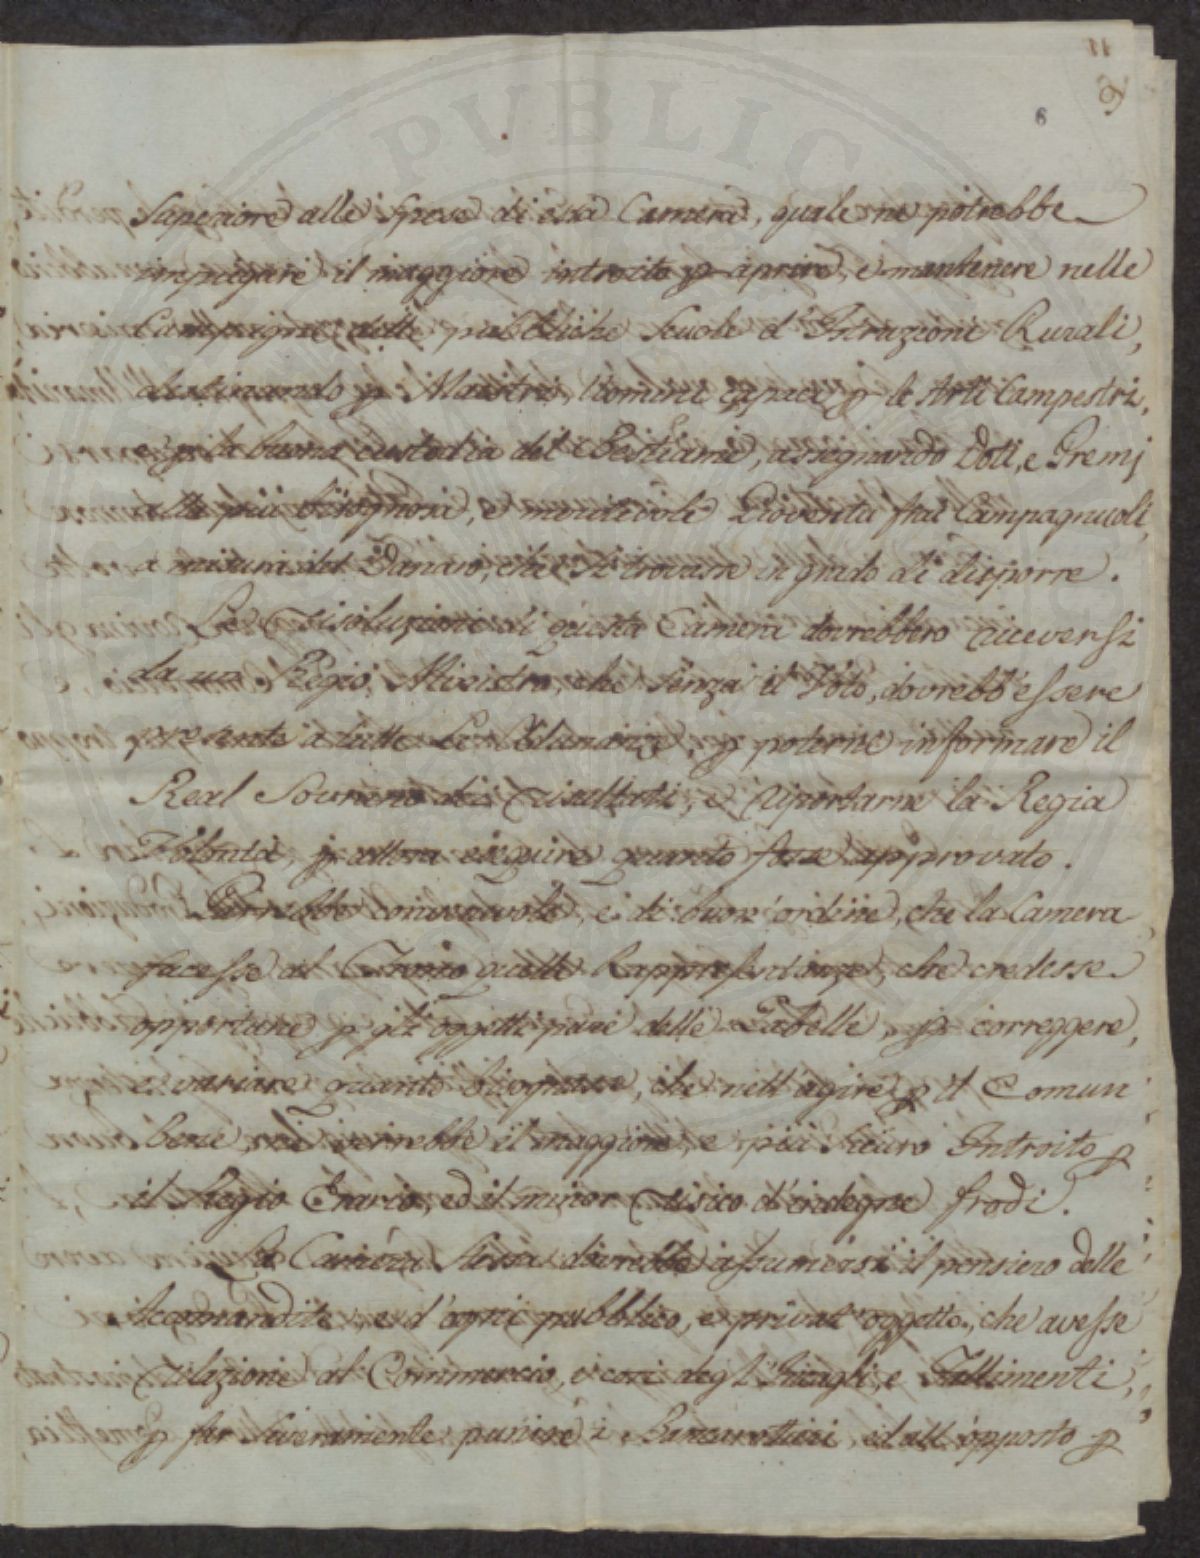 6
Superiore alle Spese di essa Camera, quale ne potrebbe
impiegare il maggiore introito p aprire, e mantenere nelle
Campagne delle pubbliche Scuole d'Istruzioni Rurali,
destinando p Maestri, Uomini capaci p le Arti Campestri,
e p la buona custodia del Bestiame, assegnando Doti, e Premj
alla più bisognosa, e meritevole Gioventù frai Campagnuoli,
a misura del Danaro, che si trovasse in grado di disporre.
Le risoluzioni di questa Camera dovrebbero riceversi
da un Regio Ministro, che senza il Voto, dovrebb'essere
presente a tutte le Adunanze, p poterne informare il
Real Sovrano dei risultati, e riportarne la Regia
Volontà, p allora eseguire quanto fosse approvato.
Sarebbe convenevole, e di buon'ordine, che la Camera
facesse al Trono quelle Rappresentanze, che credesse
opportune p gli oggetti pure delle Gabelle, p correggere,
e variare quanto bisognasse, che nell'agire p il Comun
bene, ne verrebbe il maggiore, e più sicuro Introito p
il Regio Erario, ed il minor risico d'indegne frodi.
La Camera stessa dovrebbe assumersi il pensiero delle
Accomandite, e d'ogni pubblico, e privat'oggetto, che avesse
relazione al Commercio, e così degl'Incagli, e Fallimenti,
p far severamente punire i Bancarottieri, ed all'opposto p